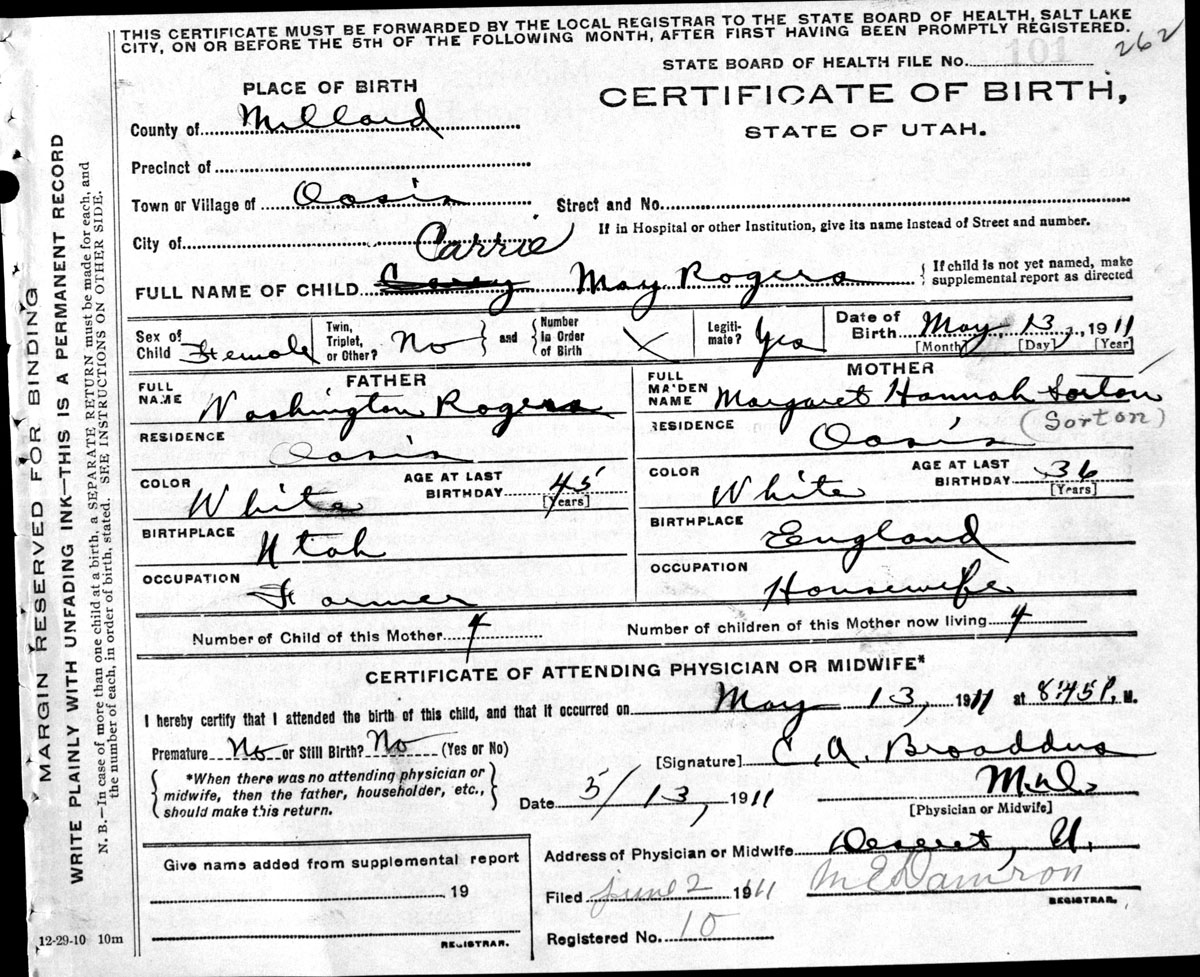 THIS CERTIFICATE MUST BE FORWARDED BY THE LOCAL REGISTRAR TO THE STATE BOARD OF HEALTH, SALT LAKE
CITY, ON OR BEFORE THE 5TH OF THE FOLLOWING MONTH, AFTER FIRST HAVING BEEN PROMPTLY REGISTERED.
262
STATE BOARD OF HEALTH FILE No. 101
PLACE OF BIRTH
CERTIFICATE OF BIRTH,
STATE OF UTAH.
County of Millard
Precinct of
Town or Village of Oasis Street and No.
If in Hospital or other Institution, give its name instead of Street and number.
City of
Carrie
FULL NAME OF CHILD May Rogers
If child is not yet named, make
supplemental report as directed
Sex of Child Female
Twin, Triplet, or Other? No
and Number in Order of Birth X
Legitimate? Yes
Date of Birth May 13, 1911
[Month] [Day] [Year]
FATHER
FULL NAME Washington Rogers
RESIDENCE Oasis
COLOR White AGE AT LAST BIRTHDAY 45
[Years]
BIRTHPLACE Utah
OCCUPATION Farmer
MOTHER
FULL MAIDEN NAME Margaret Hannah Sorton
(Sorton)
RESIDENCE Oasis
COLOR White AGE AT LAST BIRTHDAY 36
[Years]
BIRTHPLACE England
OCCUPATION Housewife
Number of Child of this Mother 4 Number of children of this Mother now living 4
CERTIFICATE OF ATTENDING PHYSICIAN OR MIDWIFE*
I hereby certify that I attended the birth of this child, and that it occurred on May 13, 1911 at 8:45 P. M.
Premature No or Still Birth? No (Yes or No)
[Signature] C. A. Broaddus
*When there was no attending physician or
midwife, then the father, householder, etc.,
should make this return.
Date 5/13, 1911
M.D.
[Physician or Midwife]
Address of Physician or Midwife Deseret, U.
Give name added from supplemental report
19
REGISTRAR.
Filed June 2 1911 M E Damron
REGISTRAR.
Registered No. 10
MARGIN RESERVED FOR BINDING
WRITE PLAINLY WITH UNFADING INK—THIS IS A PERMANENT RECORD
N. B.—In case of more than one child at a birth, a SEPARATE RETURN must be made for each, and
the number of each, in order of birth, stated. SEE INSTRUCTIONS ON OTHER SIDE.
12-29-10 10m